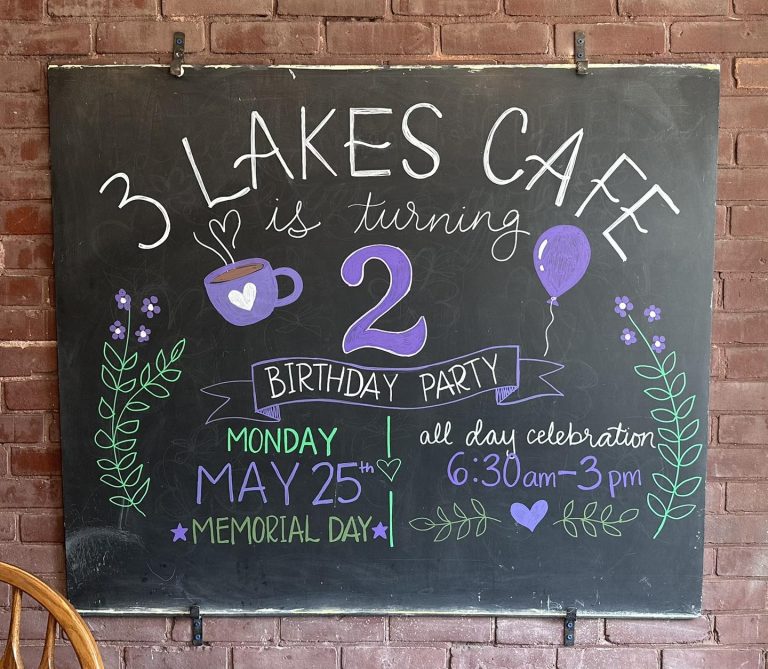 3 LAKES CAFE
is turning
2
BIRTHDAY PARTY
MONDAY
MAY 25th
MEMORIAL DAY
all day celebration
6:30am-3pm